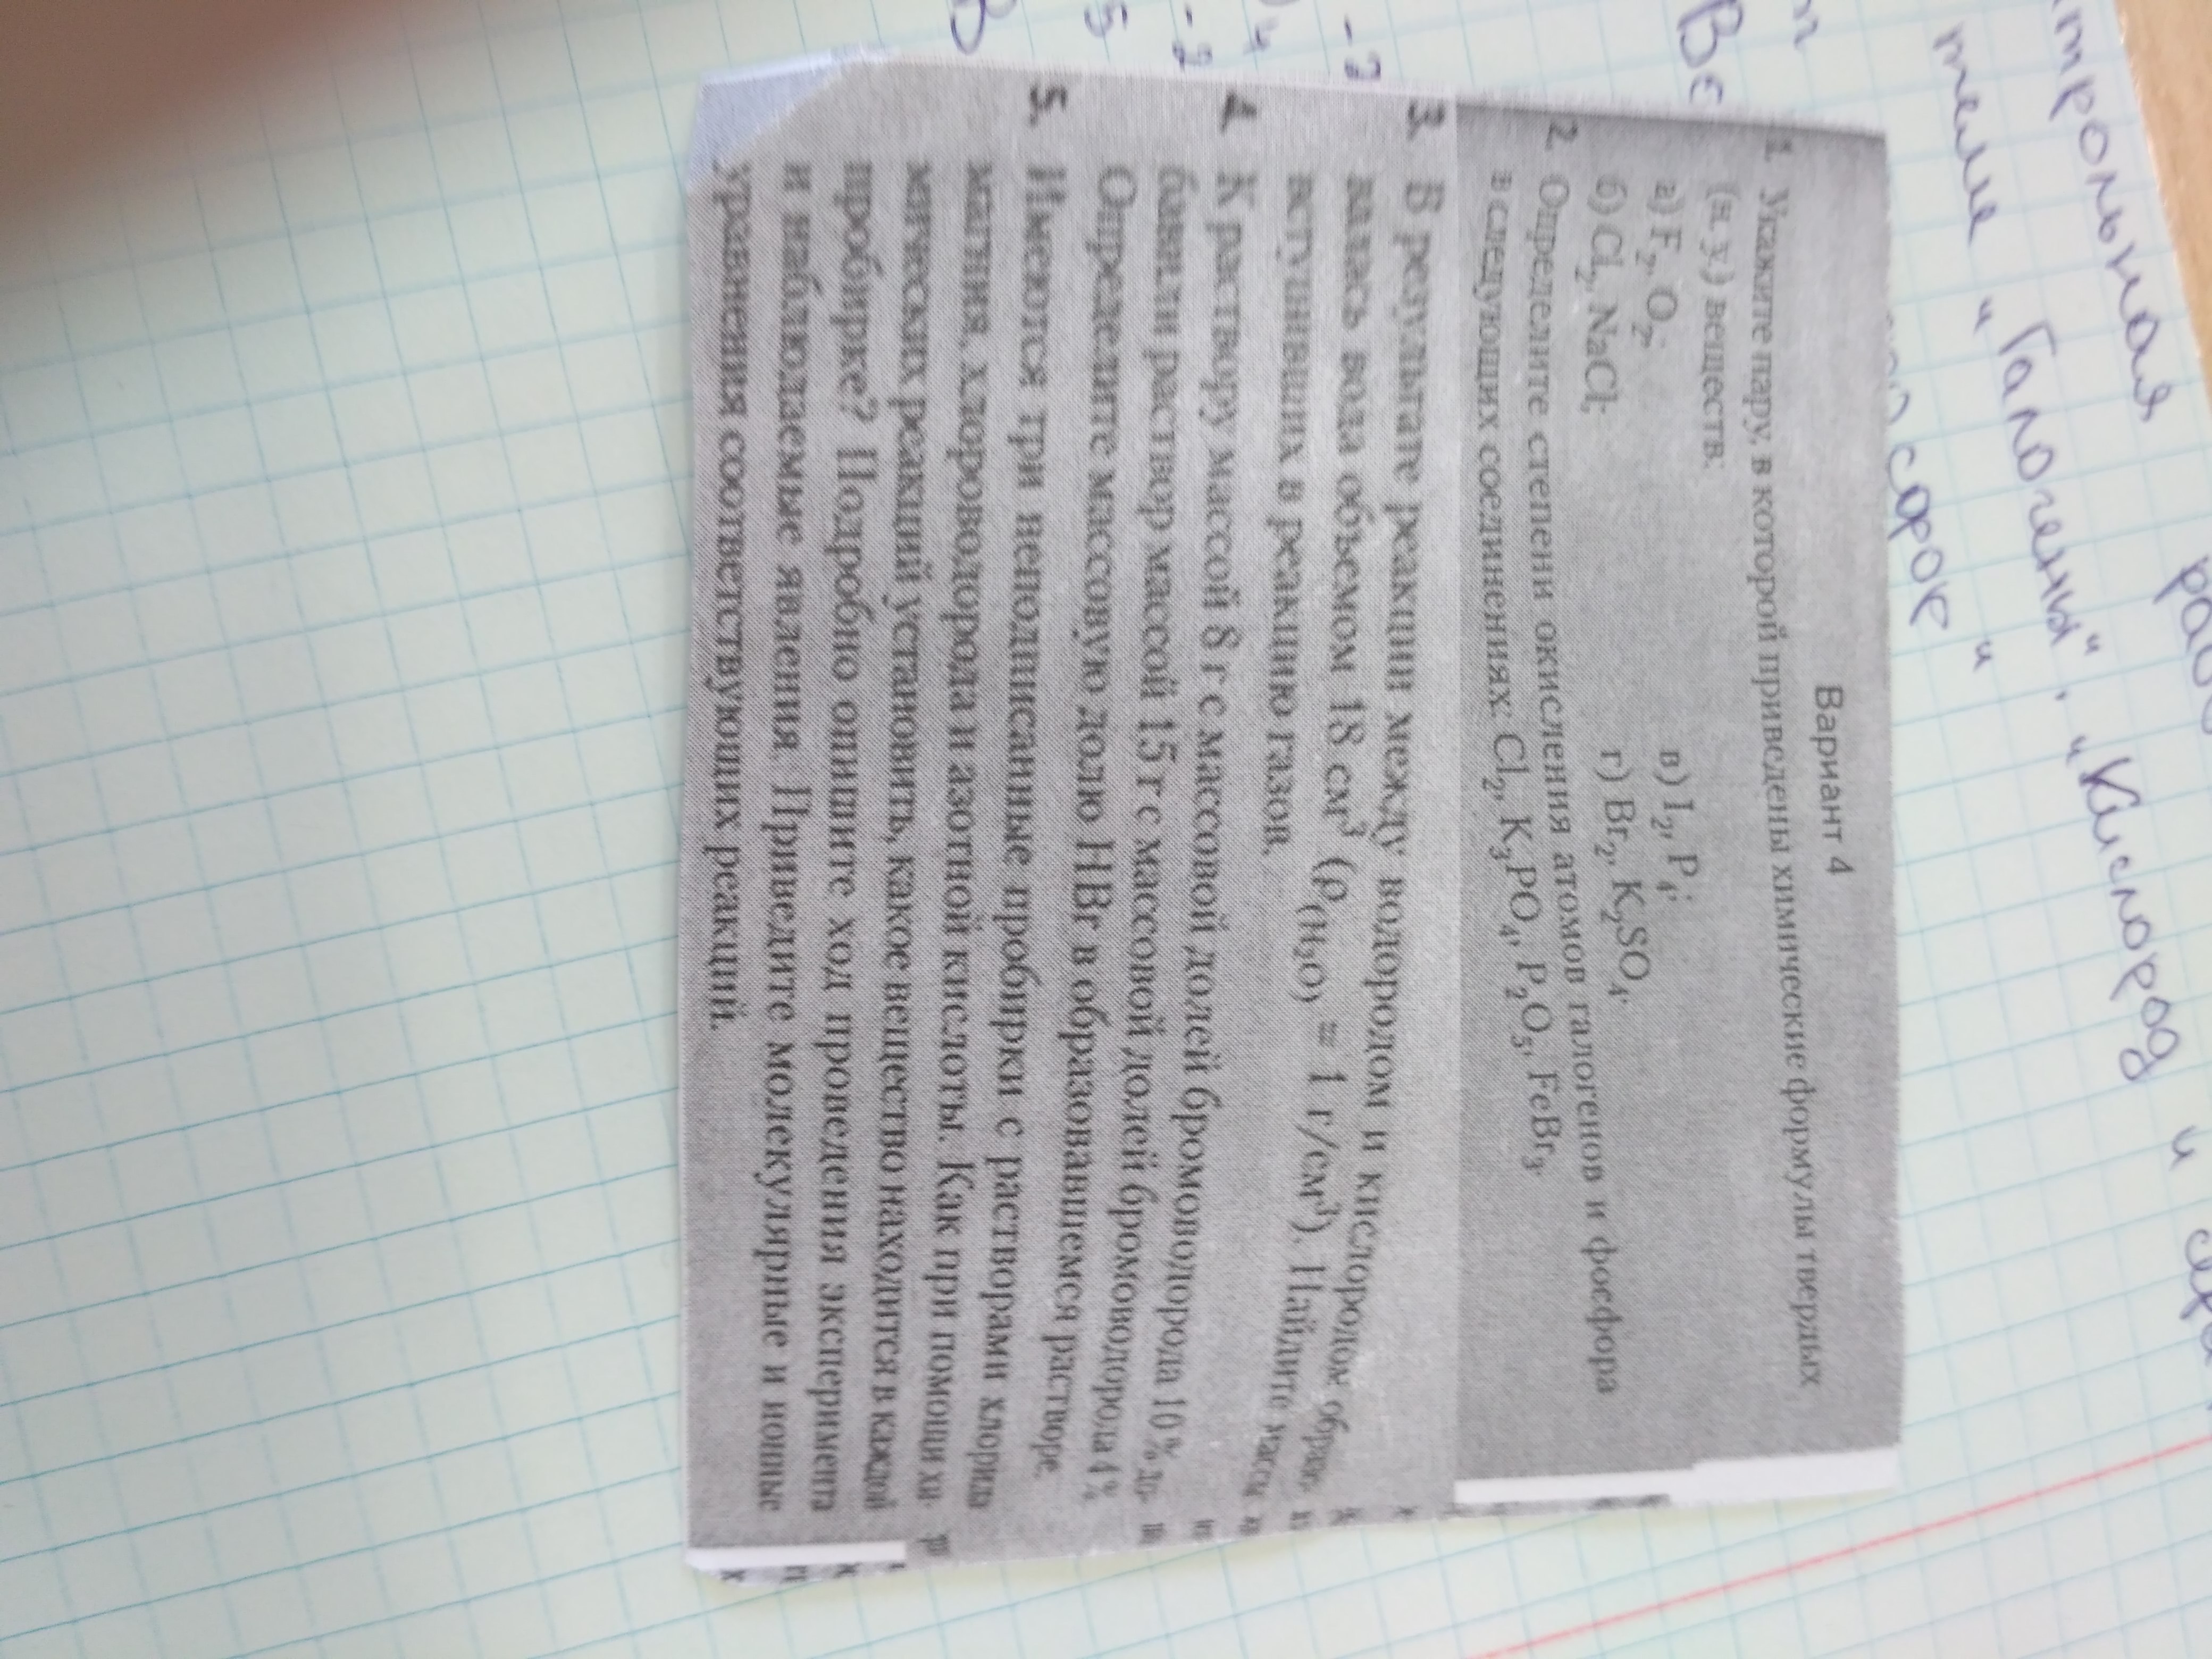 трольная
теме "Галогены", "Кислород и
Вариант 4
1. Укажите пару, в которой приведены химические формулы твердых
(н.у.) веществ:
а) F₂, O₂; в) I₂, P₄;
б) Cl₂, NaCl; г) Br₂, K₂SO₄.
2. Определите степени окисления атомов галогенов и фосфора
в следующих соединениях: Cl₂, K₃PO₄, P₂O₅, FeBr₃.
3. В результате реакции между водородом и кислородом образо-
валась вода объемом 18 см³ (ρ(H₂O) = 1 г/см³). Найдите массы
вступивших в реакцию газов.
4. К раствору массой 8 г с массовой долей бромоводорода 10 % до-
бавили раствор массой 15 г с массовой долей бромоводорода 4 %
Определите массовую долю HBr в образовавшемся растворе.
5. Имеются три неподписанные пробирки с растворами хлорида
магния, хлороводорода и азотной кислоты. Как при помощи хи-
мических реакций установить, какое вещество находится в каждой
пробирке? Подробно опишите ход проведения эксперимента
и наблюдаемые явления. Приведите молекулярные и ионные
уравнения соответствующих реакций.